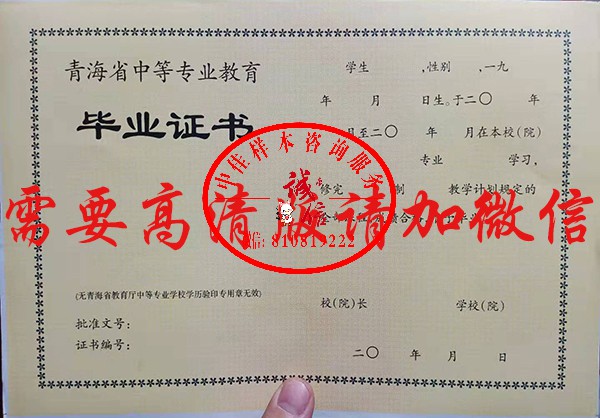 青海省中等专业教育
毕业证书
(无青海省教育厅中等专业学校学历验印专用章无效)
批准文号:
证书编号:
学生 ,性别 ,一九
年 月 日生。于二〇 年
月至二〇 年 月在本校(院)
专业 学习,
修完 制 教学计划规定的
校(院)长 学校(院)
二〇 年 月 日
中佳样本咨询服务
诚
信
微信: 810819222
需要高清版请加微信